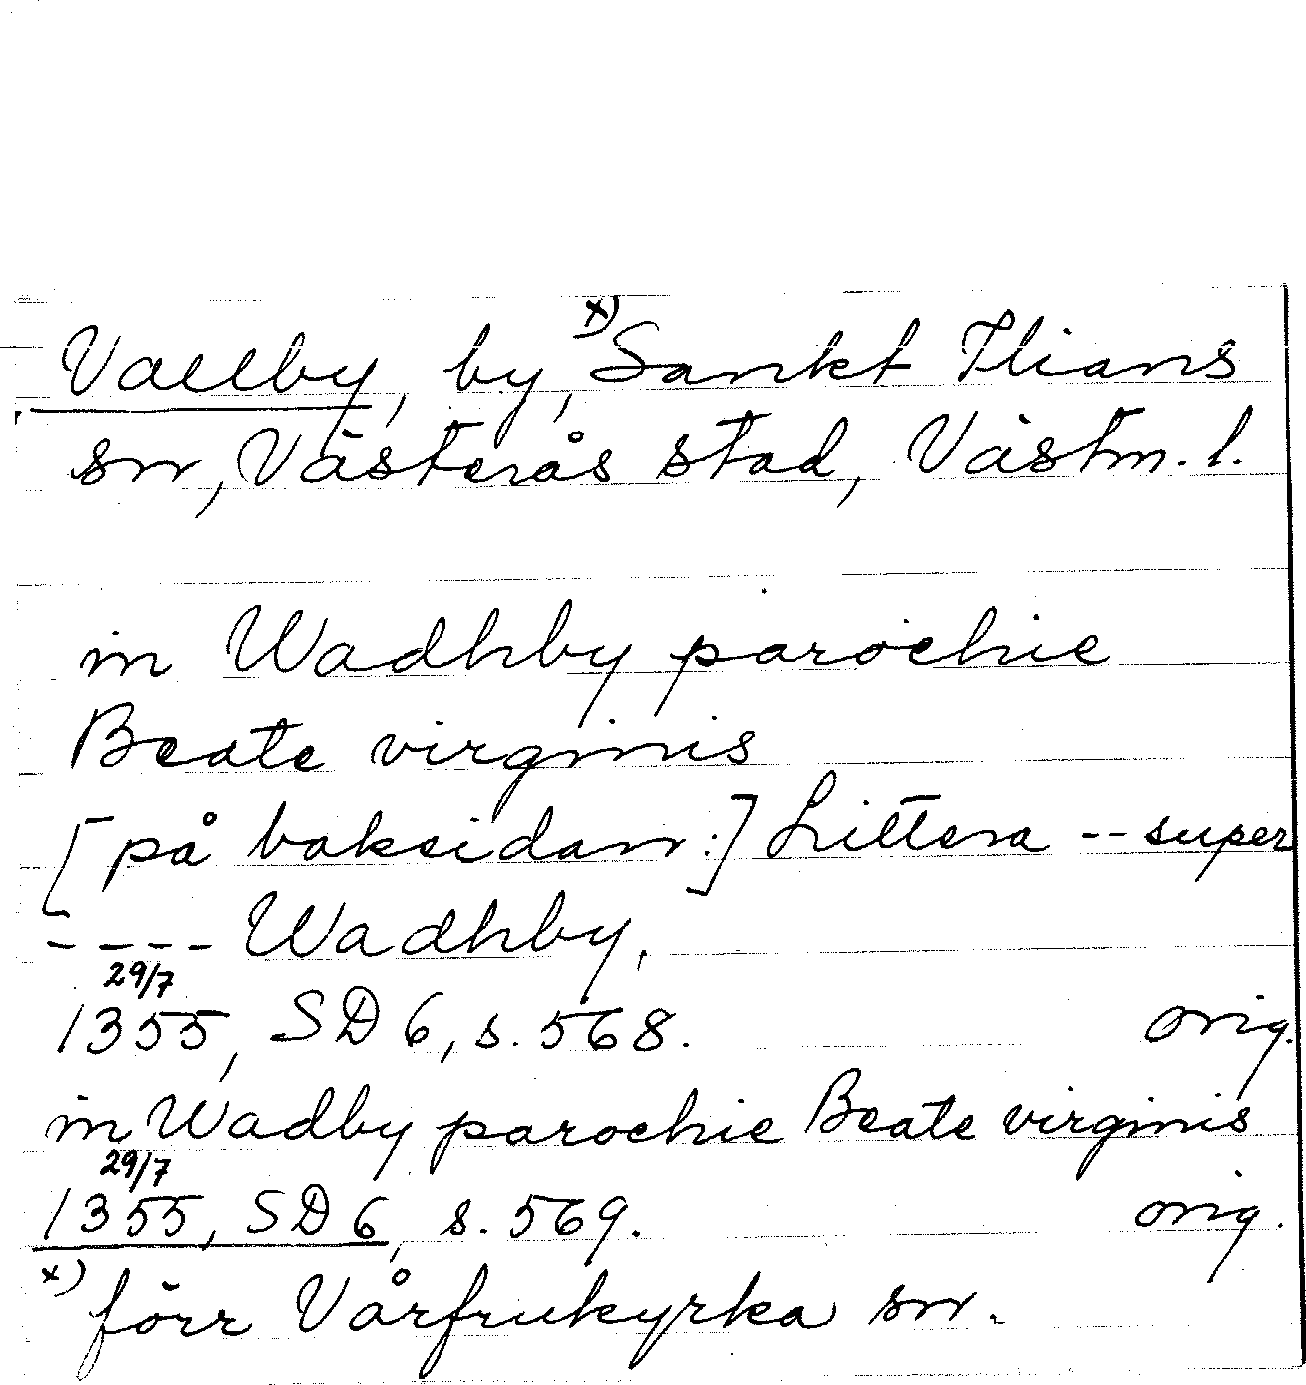 Vallby, by, x) Sankt Ilians
sn, Västerås stad, Västm. l.
in Wadhby parochie
Beate virginis
[på baksidan:] Littera -- super
---- Wadhby,
29/7
1355, SD 6, s. 568. orig.
in Wadby parochie Beate virginis
29/7
1355, SD 6, s. 569. orig.
x) förr Vårfrukyrka sn.